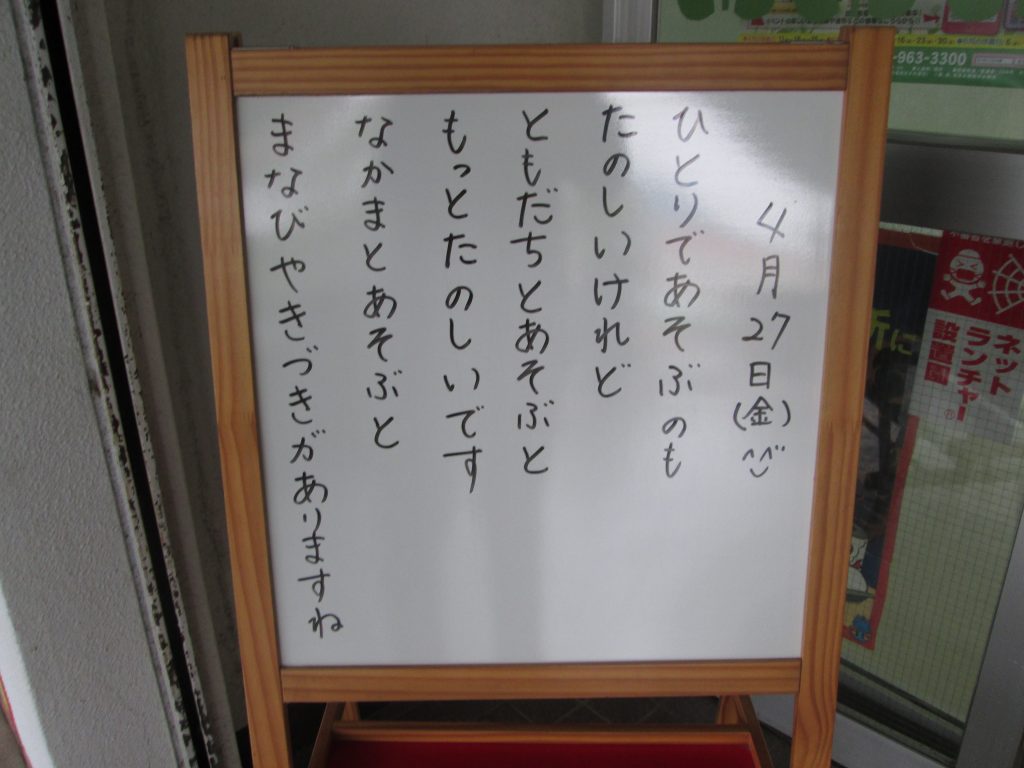 4月27日(金)
ひとりであそぶのも
たのしいけれど
ともだちとあそぶと
もっとたのしいです
なかまとあそぶと
まなびやきづきがありますね
-963-3300
ネット
ランチャー
設置園
所に